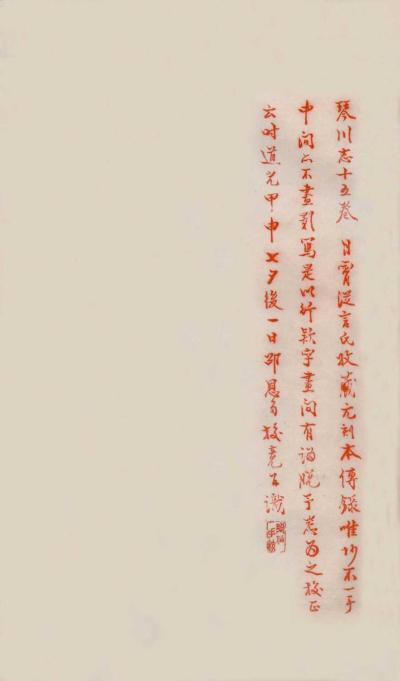 琴川志十五卷 日霄從言氏收藏元刻本傳錄唯抄不一手
中間亦不盡影寫是以行款字畫間有譌脫予悉為之校正
云時道光甲申七夕後一日邵恩多校竟並識